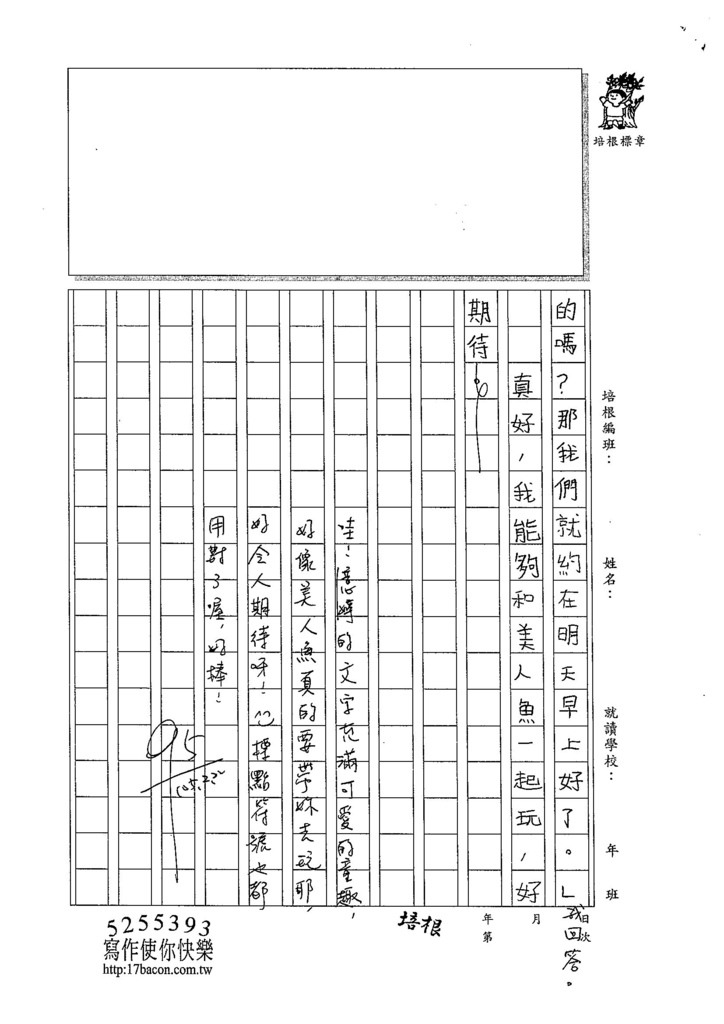 培根標章
培根編班：
姓名：
就讀學校：
年 班
的嗎？那我們就約在明天早上好了。」我回答。
真好，我能夠和美人魚一起玩，好
期待。
哇！憶婷的文字充滿可愛的童趣，
好像美人魚真的要帶妳去玩耶，
好令人期待呀！標點符號也都
用對了喔，好棒！
95
年 月 日
第 次
培根
5255393
寫作使你快樂
http:17bacon.com.tw